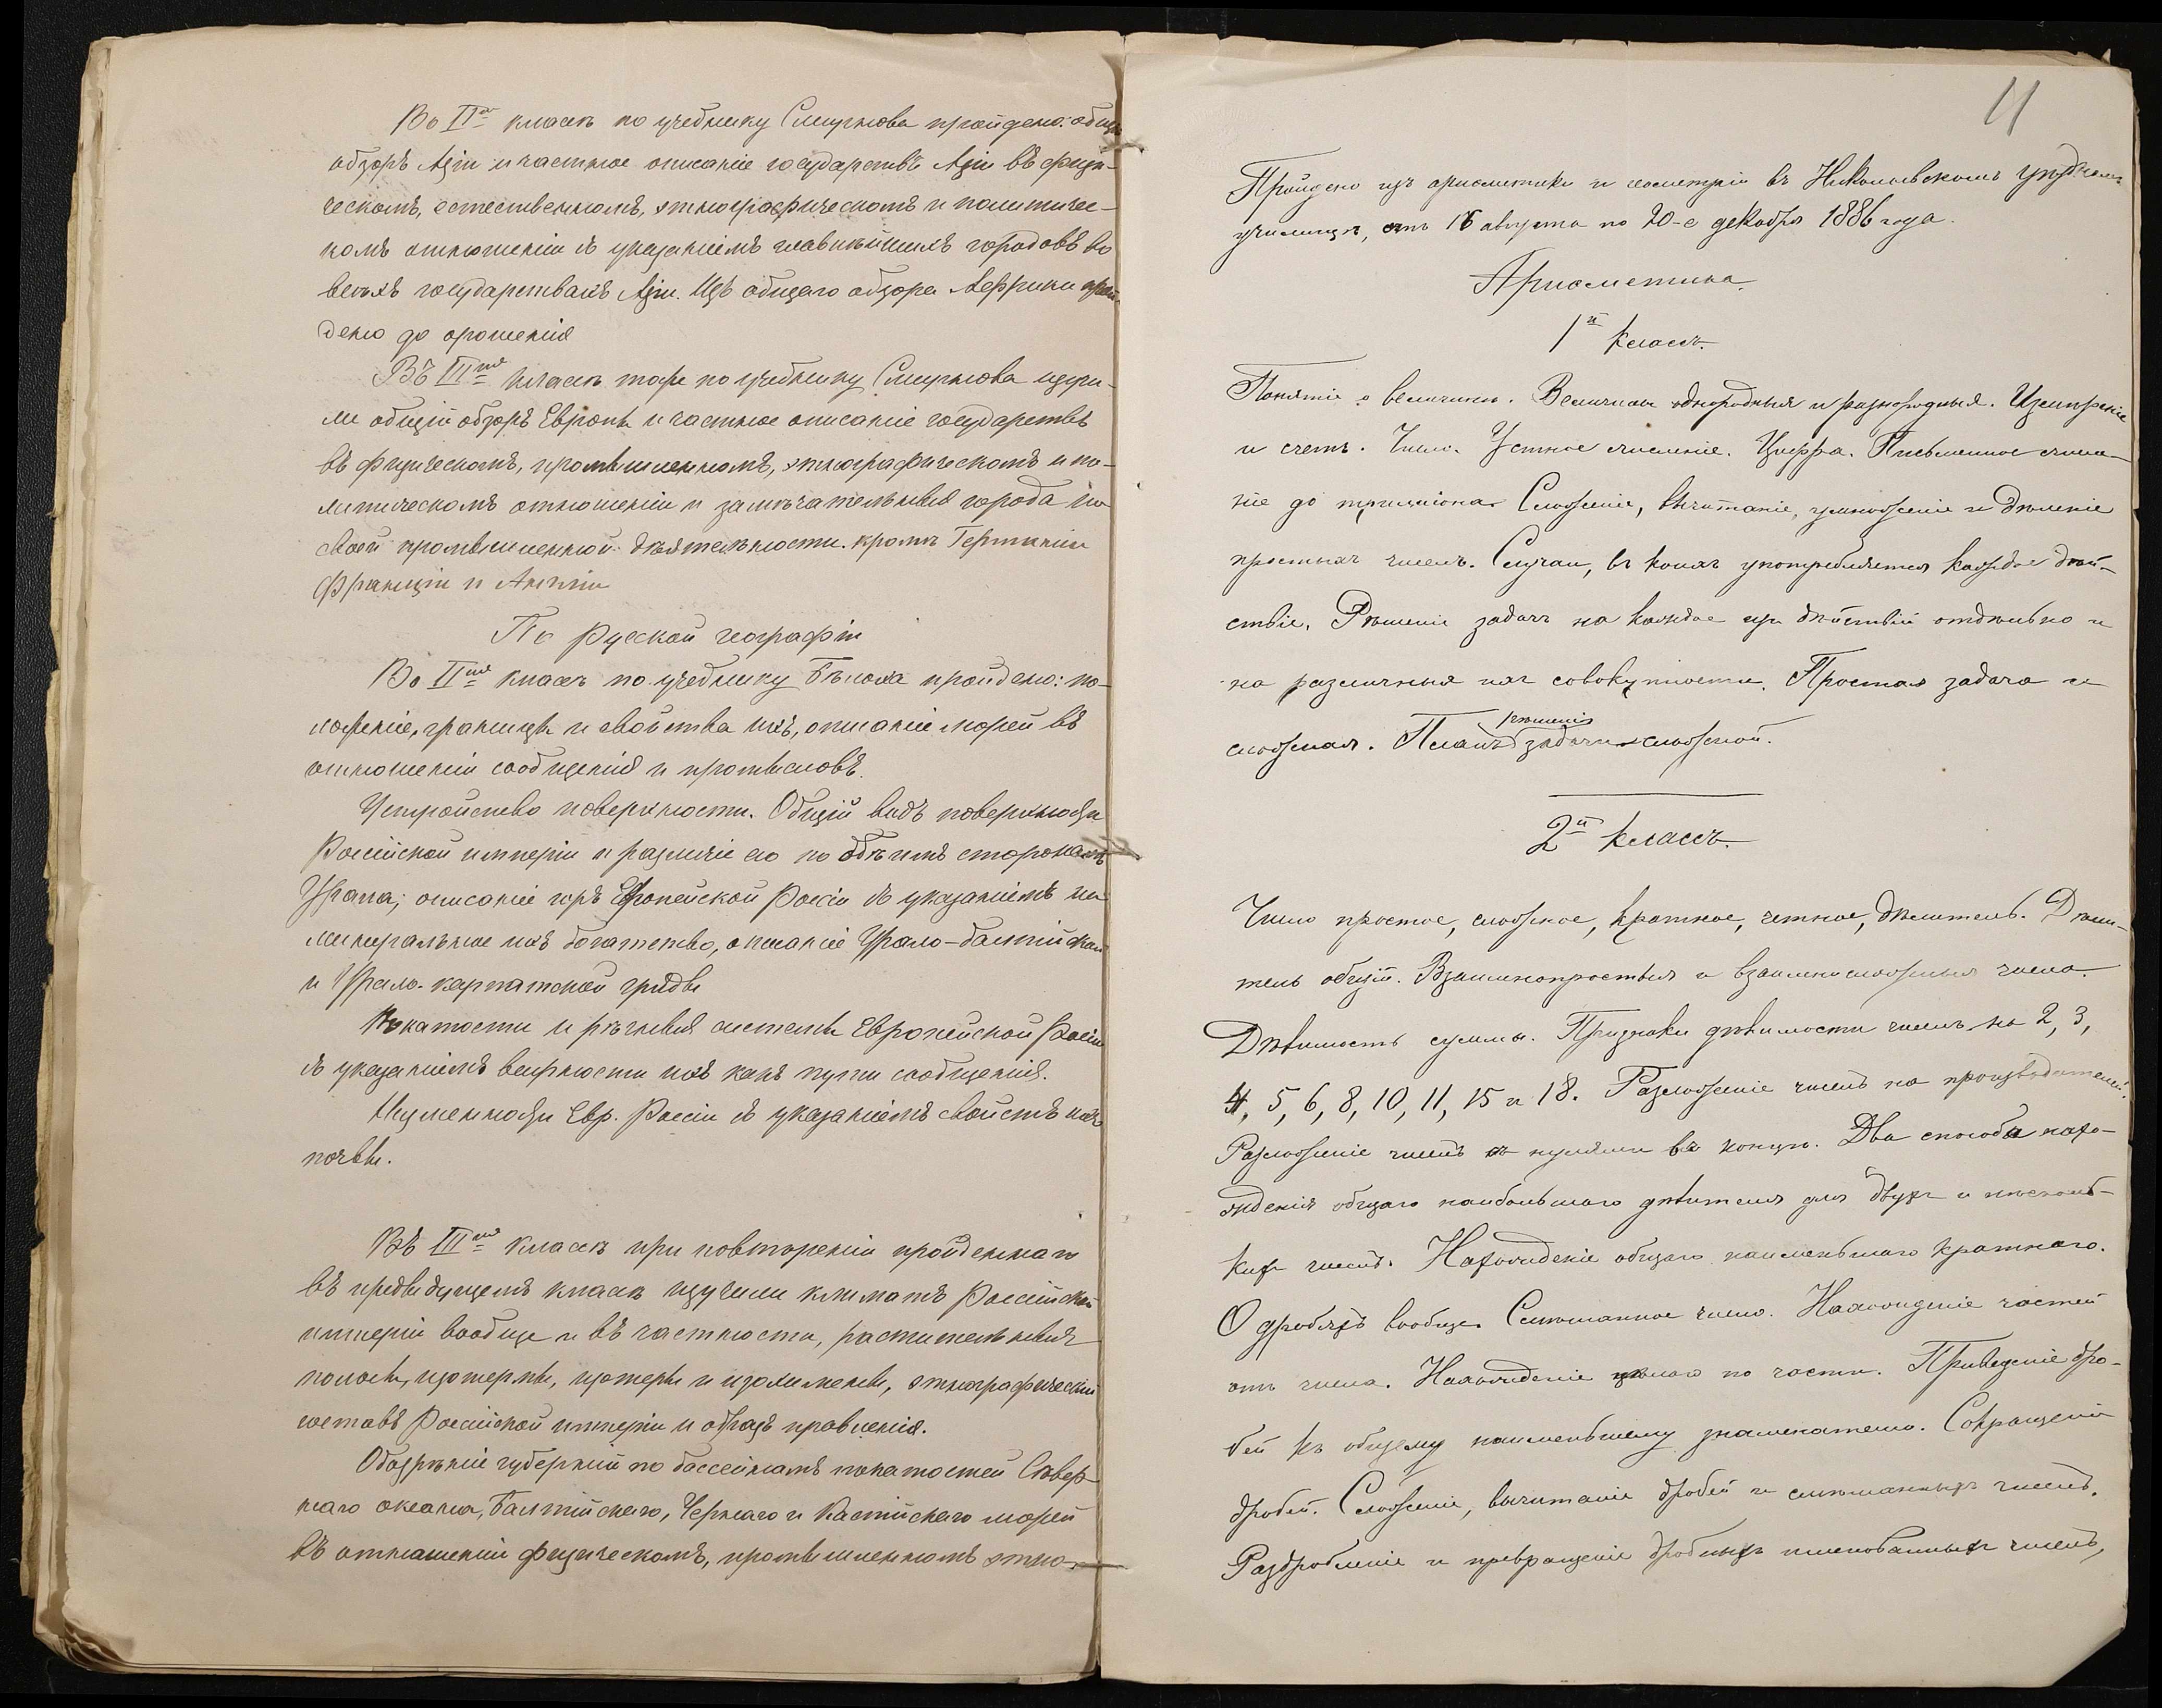 Во II<sup>мъ</sup> классѣ по учебнику Смирнова пройдено: общ.
обзоръ Азіи и частное описаніе государствъ Азіи въ физи-
ческомъ, естественномъ, этнографическомъ и политичес-
комъ отношеніи съ указаніемъ главнѣйшихъ городовъ во
всѣхъ государствахъ Азіи. Изъ общаго обзора Аффрики прой-
дено до орошенія
Въ III<sup>мъ</sup> классѣ тоже по учебнику Смирнова изучи-
ли общій обзоръ Европы и частное описаніе государствъ
въ физическомъ, промышленномъ, этнографическомъ и по-
литическомъ отношеніи и замѣчательныя города по
своей промышленной дѣятельности. кромѣ Германіи
Франціи и Англіи
По Русской географіи
Во II<sup>мъ</sup> классѣ по учебнику Бѣлоха пройдено: по-
ложеніе, границы и свойства ихъ, описаніе морей въ
отношеніи сообщенія и промысловъ.
Устройство поверхности. Общій видъ поверхности
Россійской имперіи и различіе его по обѣимъ сторонамъ
Урала; описаніе горъ Европейской Россіи съ указаніемъ на
минеральное ихъ богатство, описаніе Урало-балтійской
и Урало-карпатской гряды
Покатости и рѣчныя системы Европейской Россіи
съ указаніемъ важности ихъ какъ пути сообщенія.
Низменности Евр. Россіи съ указаніемъ свойствъ ихъ
почвы.
Въ III<sup>мъ</sup> классѣ при повтореніи пройденнаго
въ предыдущемъ классѣ изучили климатъ Россійской
имперіи вообще и въ частности, растительныя
полосы, изотермы, изотеры и изохимены, этнографическій
составъ Россійской имперіи и образъ правленія.
Обозрѣніе губерній по бассейнамъ покатостей Сѣвер-
наго океана, Балтійскаго, Чернаго и Каспійскаго морей
въ отношеніи физическомъ, промышленномъ этно-
11
Пройдено изъ ариѳметики и геометріи въ Николаевскомъ уѣздномъ
училищѣ, отъ 16 августа по 20-е декабря 1886 года.
Ариѳметика.
1<sup>й</sup> классъ.
Понятіе о величинѣ. Величины однородныя и разнородныя. Измѣреніе
и счетъ. Число. Устное счисленіе. Цифра. Письменное счисле-
ніе до трилліона. Сложеніе, вычитаніе, умноженіе и дѣленіе
простыхъ чиселъ. Случаи, въ коихъ употребляется каждое дѣй-
ствіе. Рѣшеніе задачъ на каждое изъ дѣйствій отдѣльно и
на различныя ихъ совокупности. Простая задача и
сложная. Планъ рѣшенія задачи сложной.
2<sup>й</sup> классъ.
Число простое, сложное, кратное, четное, дѣлитель. Дѣли-
тель общій. Взаимнопростыя и взаимносложныя числа.
Дѣлимость суммы. Признаки дѣлимости чиселъ на 2, 3,
4, 5, 6, 8, 10, 11, 15 и 18. Разложеніе чиселъ на производителей.
Разложеніе чиселъ съ нулями въ концѣ. Два способа нахо-
жденія общаго наибольшаго дѣлителя для двухъ и нѣсколь-
кихъ чиселъ. Нахожденіе общаго наименьшаго кратнаго.
О дробяхъ вообще. Смѣшанное число. Нахожденіе частей
отъ числа. Нахожденіе цѣлаго по части. Приведеніе дро-
бей къ общему наименьшему знаменателю. Сокращеніе
дробей. Сложеніе, вычитаніе дробей и смѣшанныхъ чиселъ.
Раздробленіе и превращеніе дробныхъ именованныхъ чиселъ,